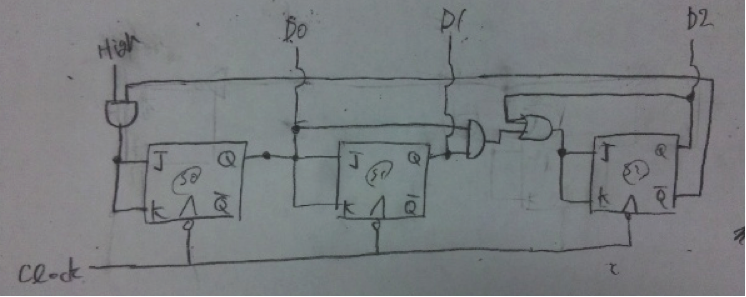 High
D0
D1
D2
J
Q
S0
K
Q̅
J
Q
S1
K
Q̅
J
Q
S2
K
Q̅
Clock